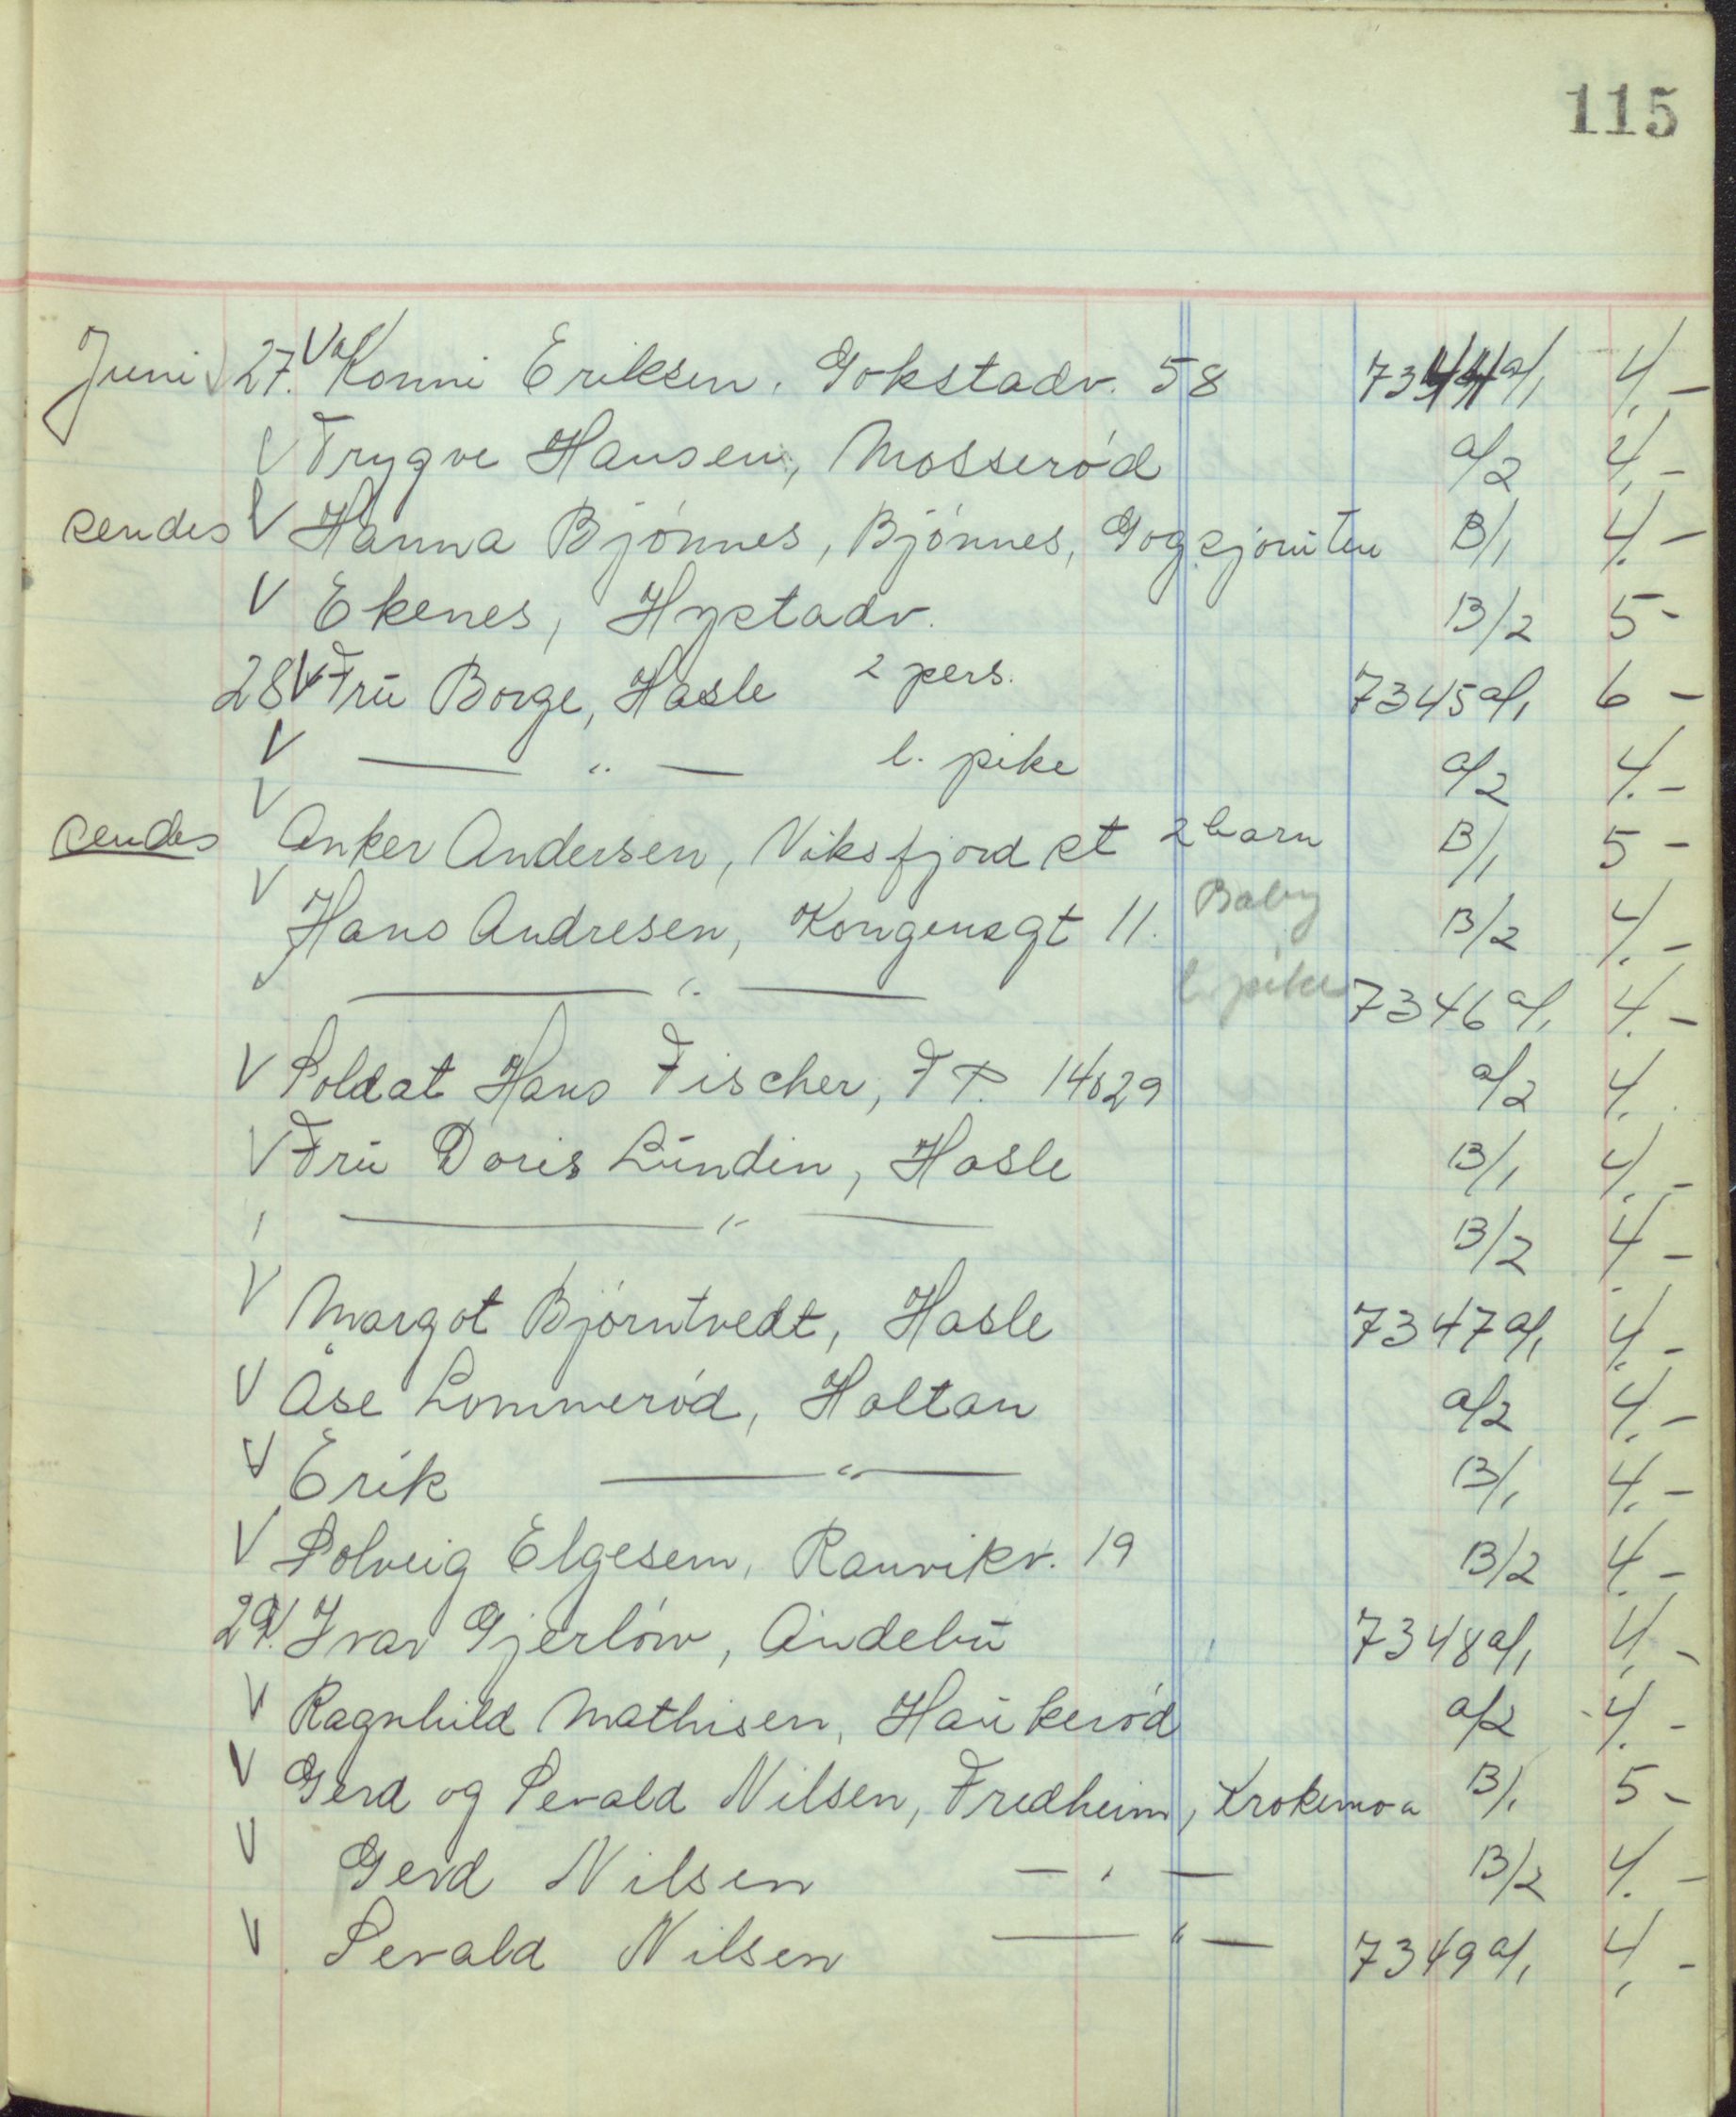 115
Juni V 27. V Konni Eriksen, Gokstadv. 58 7344 a/1 4,-
V Trygve Hansen, Mosserød a/2 4,-
sendes V Hanna Bjønnes, Bjønnes, Gogsjøruten B/1 4.-
V Ekenes, Hystadv. B/2 5-
28 V Frū Borge, Hasle 2 pers. 7345 a/1 6-
V —— " — l. pike a/2 4.-
sendes V Anker Andersen, Viksfjord st 2 barn B/1 5-
V Hans Andresen, Kongensgt 11. Baby B/2 4.-
V —— " —— l. pike 7346 a/1 4.-
V Soldat Hans Fischer, F.P. 14629 a/2 4.
V Frū Doris Lūndin, Hasle B/1 4.-
—— " —— B/2 4-
V Margot Bjørntvedt, Hasle 7347 a/1 4.-
V Åse Lommerød, Holtan a/2 4.-
V Erik —— " —— B/1 4.-
V Solveig Elgesem, Ranvikv. 19 B/2 4.-
29. V Ivar Gjerløw, Andebū 7348 a/1 4,-
V Ragnhild Mathisen, Haūkerød a/2 4.-
V Gerd og Sevald Nilsen, Fredheim, Krokemoa B/1 5-
V Gerd Nilsen — " — B/2 4.-
V Sevald Nilsen —— " — 7349 a/1 4,-